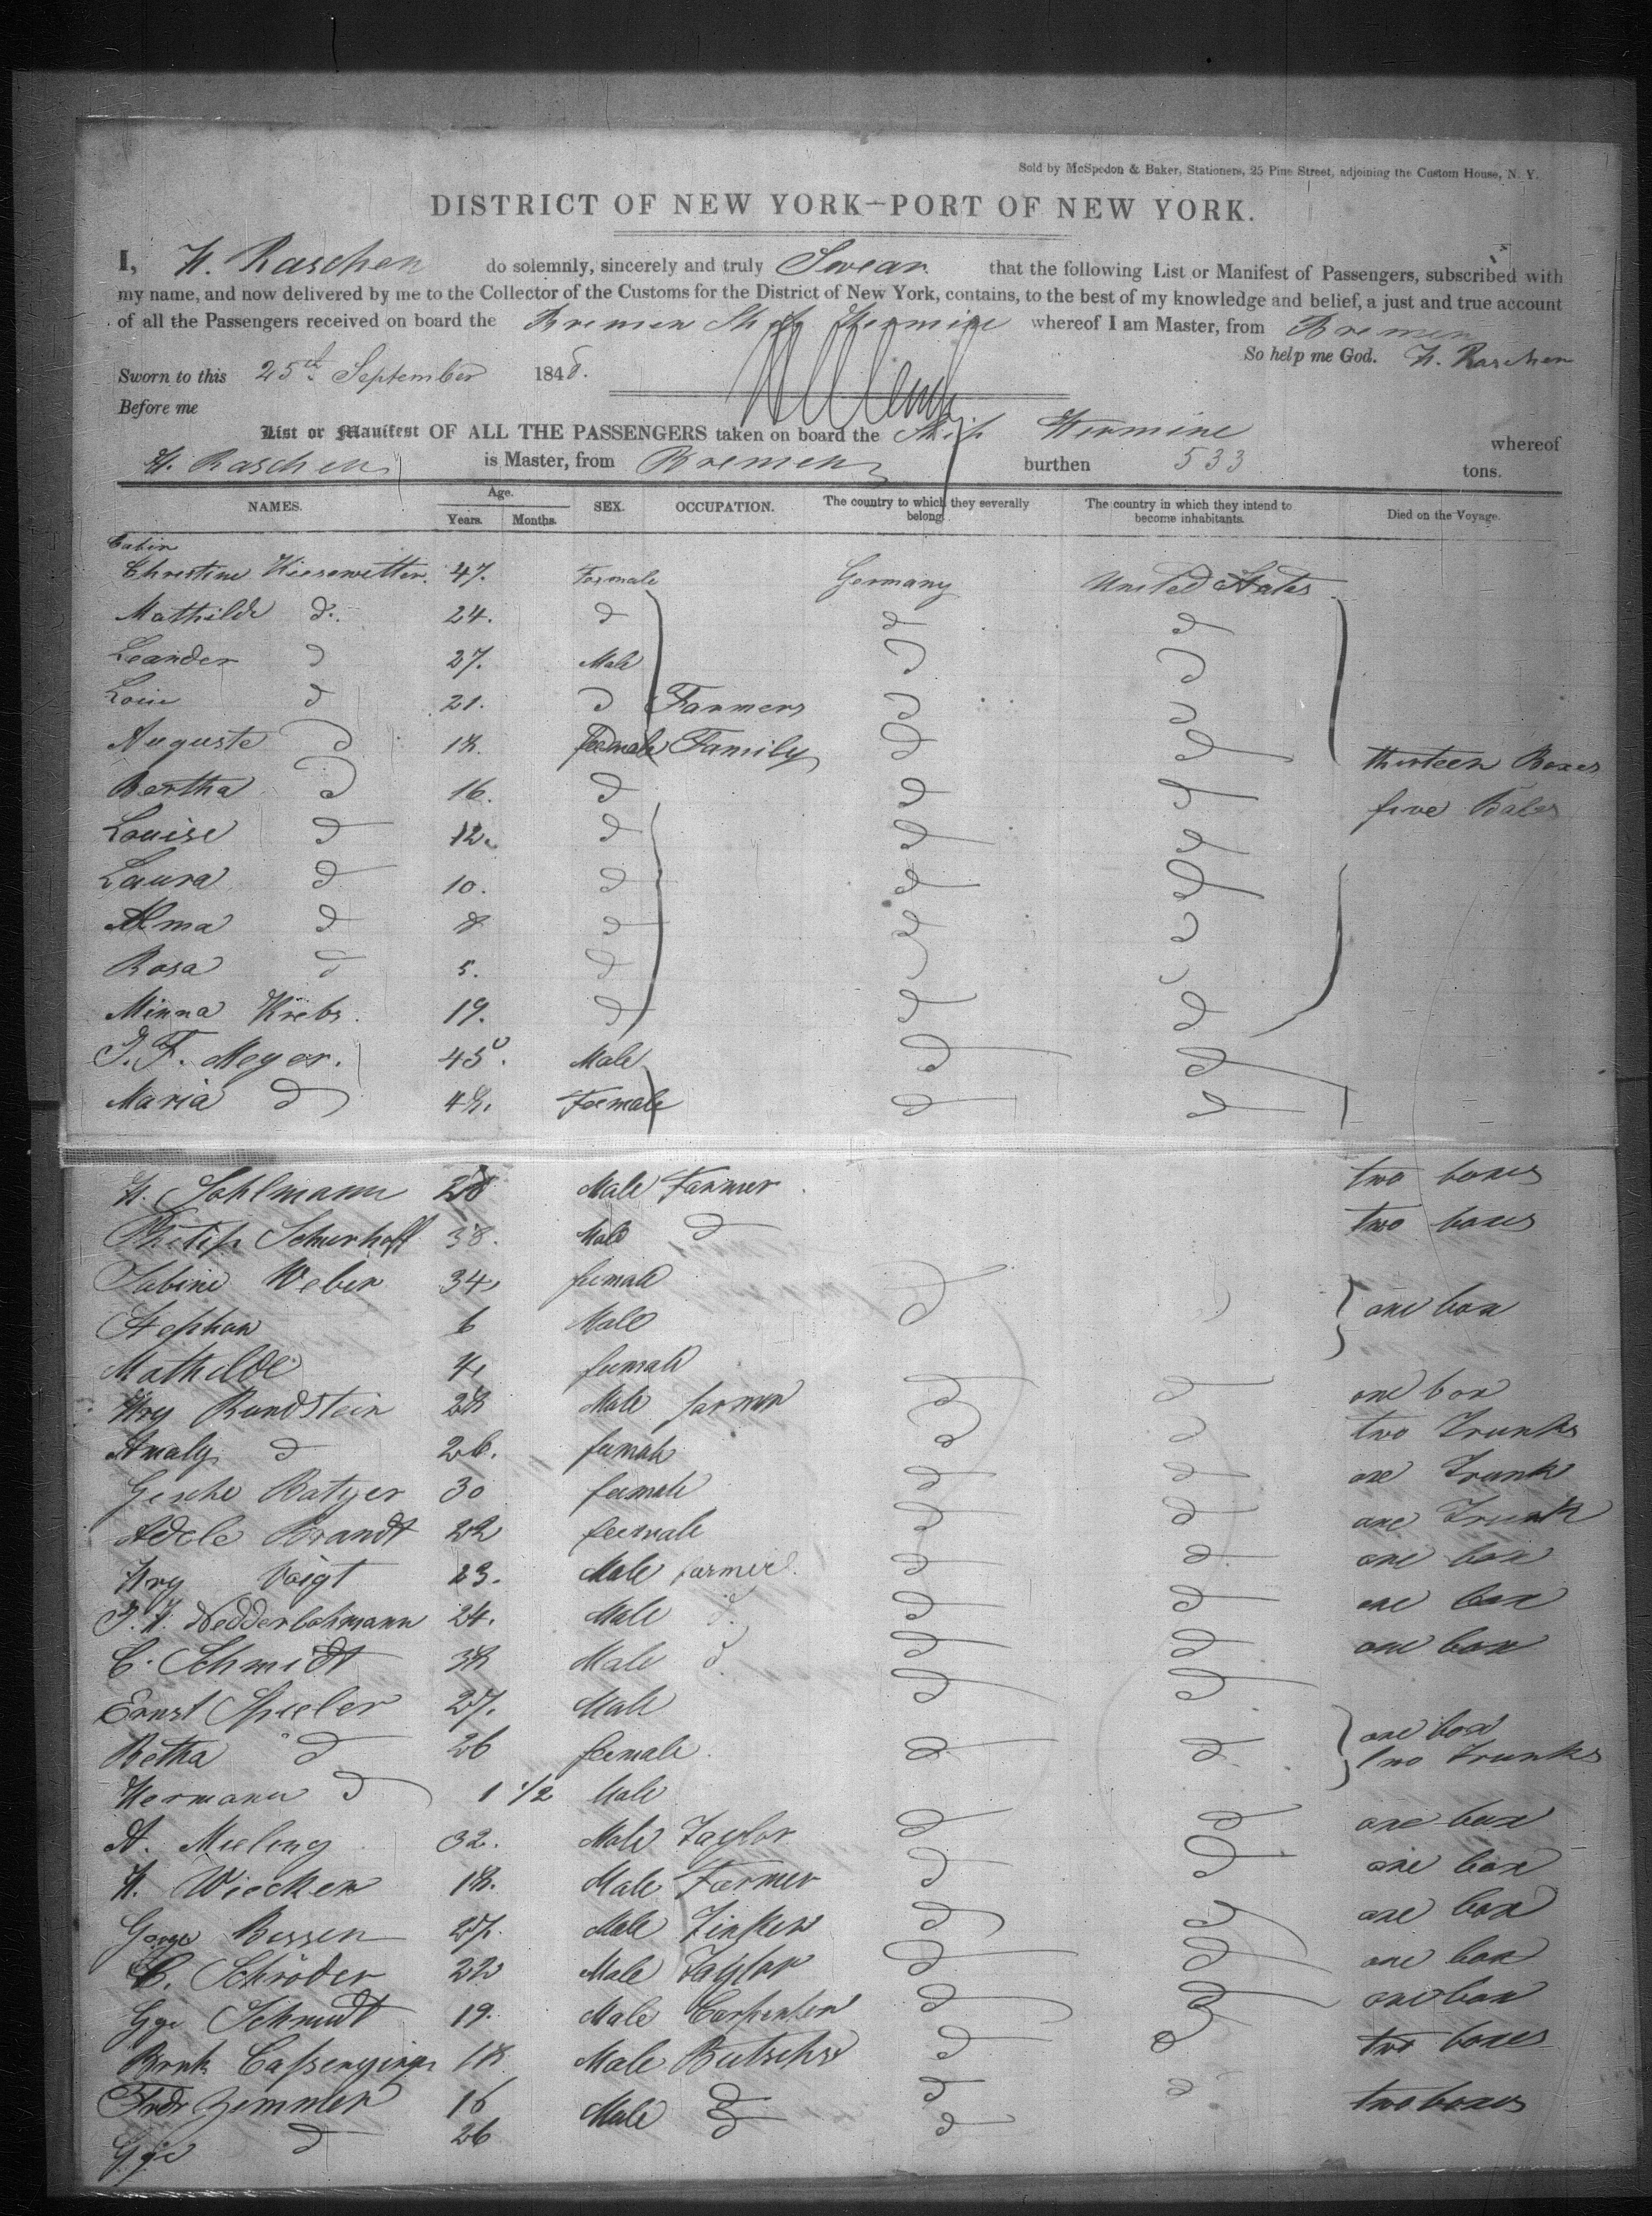 Sold by McSpedon & Baker, Stationers, 25 Pine Street, adjoining the Custom House, N. Y.
DISTRICT OF NEW YORK—PORT OF NEW YORK.
I, H. Raschen do solemnly, sincerely and truly Swear that the following List or Manifest of Passengers, subscribed with
my name, and now delivered by me to the Collector of the Customs for the District of New York, contains, to the best of my knowledge and belief, a just and true account
of all the Passengers received on board the Bremen Ship Hermine whereof I am Master, from Bremen
So help me God. H. Raschen
Sworn to this 25th September 1848.
Before me
List or Manifest OF ALL THE PASSENGERS taken on board the Ship Hermine whereof
H. Raschen is Master, from Bremen burthen 533 tons.
NAMES. Age. Years. Months. SEX. OCCUPATION. The country to which they severally belong. The country in which they intend to become inhabitants. Died on the Voyage.
Cabin
Christine Kiesewetter. 47. Female Germany United States
Mathilde d. 24. d d d
Leander d 27. Male d d
Louis d 21. d Farmers d d
Auguste d 18. female Family d d
thirteen Boxes
Bertha d 16. d d d
five Bales
Louise d 12. d d d
Laura d 10. d d d
Alma d 8 d d d
Rosa d 5. d d d
Minna Krebs. 19. d d d
J. F. Meyer. 45. Male d d
Maria d 48. Female d d
H. Sohlmann 28 Male Farmer two boxes
Philip Schurhoff 38. Male d two boxes
Sabine Weber 34, female d
one box
Stephan 6 Male
Mathilde 4, female
Hry Rundstein 28 Male farmer d d one box
Amaly d 26. female d d two Trunks
Gesche Batjer 30 female d d one Trunk
Adele Brandt 22 female d d one Trunk
Hry Voigt 23. Male farmer. d d one box
J. H. Nedderlohmann 24. Male d. d d one box
C. Schmidt 38 Male d. d d one box
Ernst Spieler 27. Male d d
one box
Betha d 26 female. d d two Trunks
Hermann d 1 1/2 Male
A. Mieling 32. Male Taylor d d one box
H. Wiecken 18. Male Farmer d d one box
George Bessen 27. Male d d one box
C. Schröder 22 Male Taylor d d one box
Gge Schmidt 19. Male Carpenter d d one box
18 Male d d two boxes
Fredr Zimmer 16 Male d d d two boxes
Gge d 26 d d